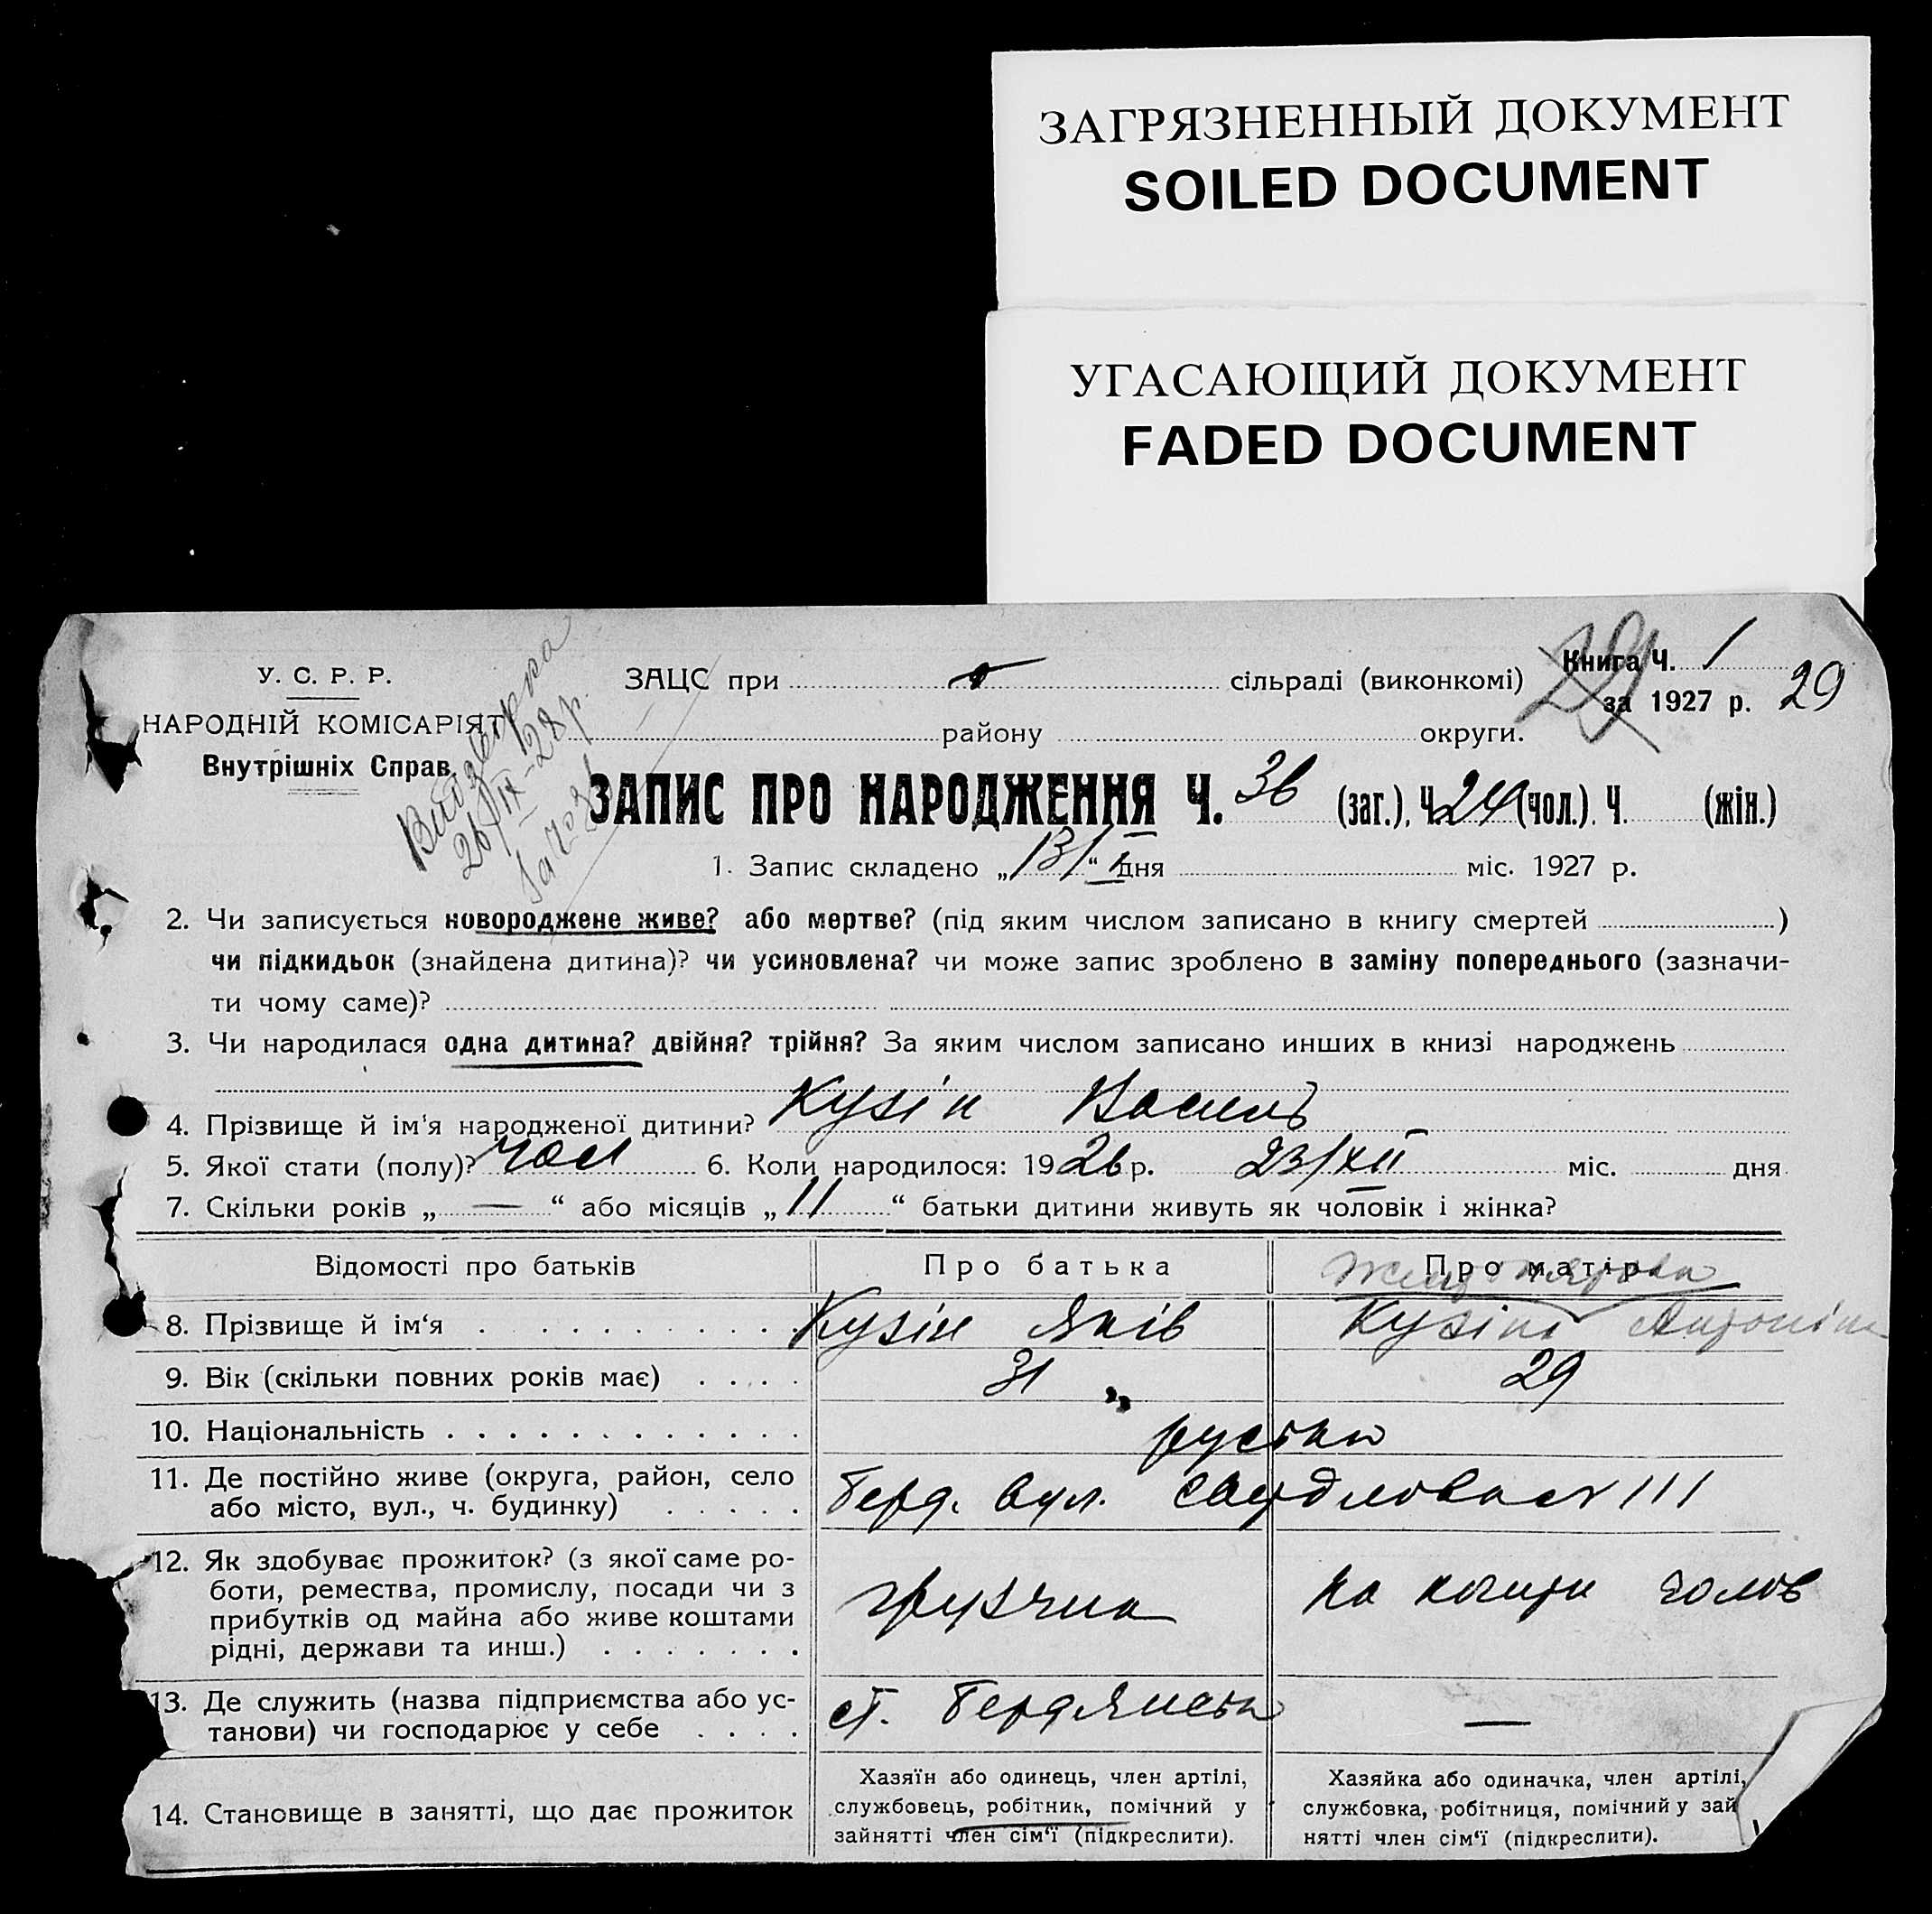 ЗАГРЯЗНЕННЫЙ ДОКУМЕНТ
SOILED DOCUMENT
УГАСАЮЩИЙ ДОКУМЕНТ
FADED DOCUMENT
У. С. Р. Р.
НАРОДНІЙ КОМІСАРІЯТ
Внутрішніх Справ.
26/IX-28 р
ЗАЦС при сільраді (виконкомі)
району округи.
Книга Ч. 1
за 1927 р. 29
29
ЗАПИС ПРО НАРОДЖЕННЯ Ч. 36 (заг.), Ч. 24 (чол.). Ч. (жін.)
1. Запис складено „13/I“ дня міс. 1927 р.
2. Чи записується новороджене живе? або мертве? (під яким числом записано в книгу смертей )
чи підкидьок (знайдена дитина)? чи усиновлена? чи може запис зроблено в заміну попереднього (зазначи-
ти чому саме)?
3. Чи народилася одна дитина? двійня? трійня? За яким числом записано инших в книзі народжень
4. Прізвище й ім'я народженої дитини? Кузін Василь
5. Якої стати (полу)? чол 6. Коли народилося: 1926 р. 23/XII міс. дня
7. Скільки років „ — “ або місяців „ 11 “ батьки дитини живуть як чоловік і жінка?
Відомості про батьків Про батька Про матір
8. Прізвище й ім‘я Кузін Яків Кузіна Антоніна
9. Вік (скільки повних років має) 31 29
10. Національність руські
11. Де постійно живе (округа, район, село
або місто, вул., ч. будинку) Берд. вул. 111
12. Як здобуває прожиток? (з якої саме ро-
боти, ремества, промислу, посади чи з
прибутків од майна або живе коштами
рідні, держави та инш.)
грузчик
на кошти чолов
13. Де служить (назва підприємства або ус-
танови) чи господарює у себе
ст. Бердянськ
—
14. Становище в занятті, що дає прожиток
Хазяїн або одинець, член артілі,
службовець, робітник, помічний у
зайнятті член сім‘ї (підкреслити).
Хазяйка або одиначка, член артілі,
службовка, робітниця, помічний у зай
нятті член сім‘ї (підкреслити).